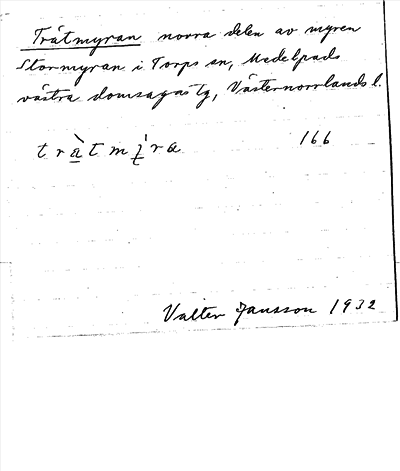 Tråtmyran norra delen av myren
Stormyran i Torps sn, Medelpads
västra domsagas tg, Västernorrlands l.
tràtmýra 166
Valter Jansson 1932